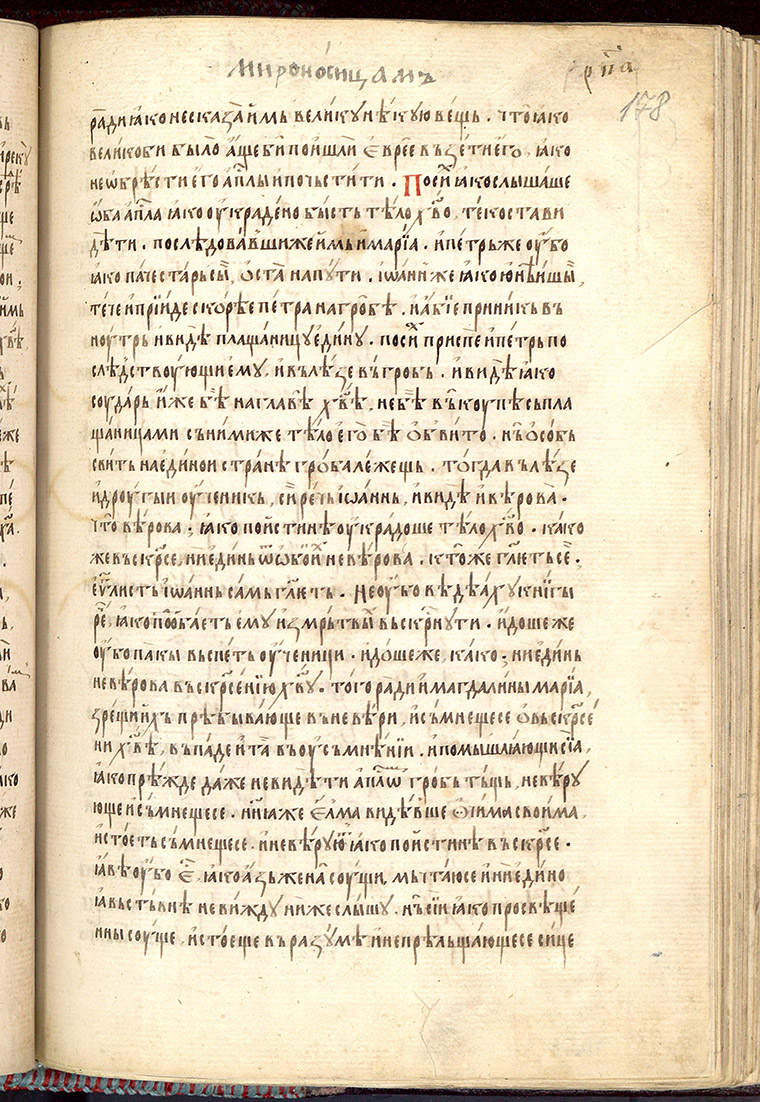 мѵроно́сицамъ
рп҃а
178
ра́ди ꙗко несказа̀ и҆̀мь велику нѣ́кую ве́щь . что̀ ꙗко
велико би было̀ а҆́ще би̏ пои҆шли̏ є҆вре́є въꙁе́ти є҆го̀ , ꙗко
не ѡ҆брѣ́сти є҆го а҆пⷭ҇лы и҆ почьсти́ти . По си́х ꙗко слышаше
ѡ҆ба а҆пⷭ҇ла ꙗко ѹ҆краде́но бы́сть тѣ́ло хⷭ҇во , теко́ста ви
дѣти . послѣдова́вши же и҆̀мь и҆ марі́а . и҆ пе́трь же ѹ҆́бо
ꙗко па́че ста́рь сы̏ , ѻ҆ста̀ на пу́ти . і҆ѡа́нн же ꙗко ю҆нѣ́ишы̏ ,
тече̏ и҆ прі́иде ско́рѣе пе́тра на гро́бѣ . и҆ а҆́бїе прини́кь въ
ноу́трь и҆ ви́дѣ плаща́ницу є҆ди́ну . по си́х приспе̏ и҆ пе́трь по
слѣ́дствоую́щи є҆му̀ , и҆ вълѣ́ꙁе въ гро́бь . и҆ ви́дѣ ꙗко
соуда́рь и҆́же бѣ̏ на главѣ̏ хⷭ҇вѣ , не бѣ̏ въкоу́пѣ сь пла
ща́ницами съ ни́миже тѣ́ло є҆го̀ бѣ̏ ѻ҆бви́то . нь̏ ѻ҆со́бь
сви́ть на є҆ди́нои стра́нѣ гро́ба лежещь . тогда̀ вълѣ́ꙁе
и҆ дроугы́и ѹ҆чени́кь , си́ рѣчь і҆ѡа́ннь , и҆ ви́дѣ и҆ вѣ́рова̀ .
что̀ вѣ́рова ; ꙗко по и҆́стинѣ ѹ҆кра́доше тѣ́ло хⷭ҇во . ка́ко
же въскрⷭ҇се , ни є҆ди́нь ѿ ѻ҆бо́их не вѣ́рова . кто́ же гл҃еть се̏ .
є҆ѵⷢ҇листь і҆ѡа́ннь самь гл҃еть . Не ѹ҆́бо вѣ́дѣахѹ кни́гы
ре̏ , ꙗко поⷣба́еть є҆му̀ и҆ꙁ мрьтвы̏х вьскрⷭ҇нути . и҆до́ше же
ѹ҆́бо пакы вьспе́ть ѹ҆чени́ци . и҆до́ше же , ка́ко ; ни є҆ди́нь
не вѣ́рова въскрⷭ҇се́нїю хⷭ҇вѹ . того̀ ра́ди и҆ магдалины марі́а ,
ꙁре́щи и҆́хь прѣбыва́юще въ неве́ри , и҆ съмне́щесе ѻ҆ вьскрⷭ҇се́
ни хⷭ҇вѣ , въпаде̏ и҆ та̏ въ ѹ҆съмнѣ́нїи . и҆ помышлꙗ́ющи сїа̏ ,
ꙗко прѣ́жде да́же не ви́дѣти а҆пⷭ҇лѡⷨ гро́бь тъ́щь , не вѣ́рꙋ
юще и҆ съмне́щесе . ни̏нꙗ же є҆лма̀ ви́дѣвше ѻ҆чи́ма свои́ма ,
и҆́стоеть съмне́щесе . и҆ не вѣ́рꙋю́т ꙗко по и҆́стинѣ въскрⷭ҇се .
ꙗ҆́вѣ ѹ҆́бо є҆̏ , ꙗко а҆́ꙁь жена̏ соу́щи , мы́таюсе и҆ ни є҆ди́но
ꙗ҆́вьстьвнѣ не ви́жду ни́же слы́шу . нь̏ сі́и ꙗко просвѣ́ще́
нны соу́ще , и҆́стоеще въ ра́ꙁꙋмѣ и҆ не прѣльща́ющесе си́це